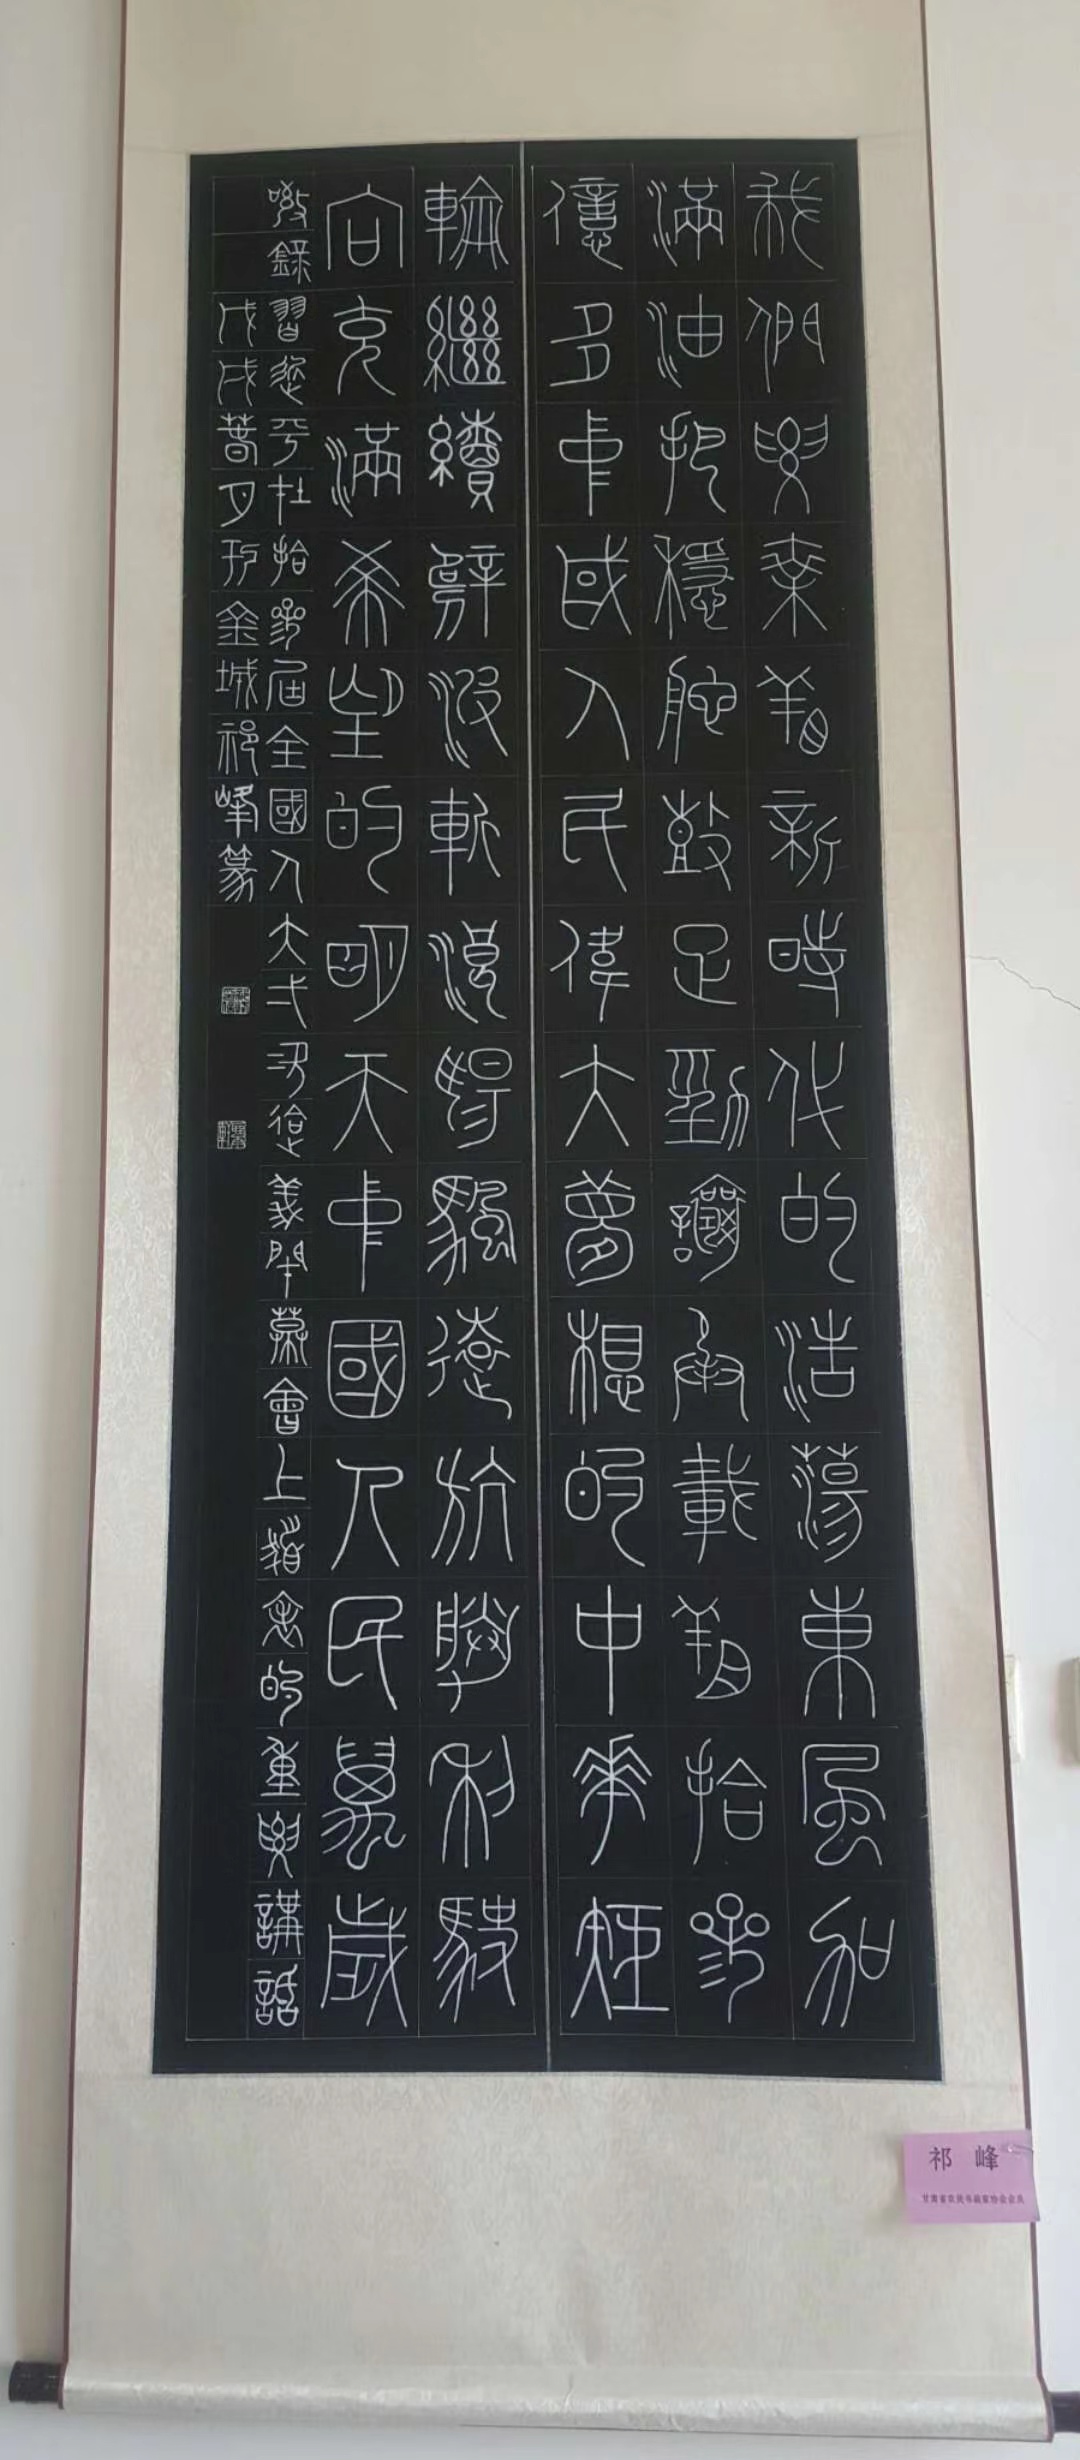 我們要乘着新時代的浩蕩東風加
滿油把穩舵鼓足勁讓承載着拾叁
億多中國人民偉大夢想的中華巨
輪繼續劈波斬浪揚帆遠航勝利駛
向充滿希望的明天中國人民萬歲
敬錄習近平在拾叁屆全國人大弌次會議閉幕會上的重要講話
戊戌月於金城祁峰篆
祁峰
甘肃省农民书画家协会会员